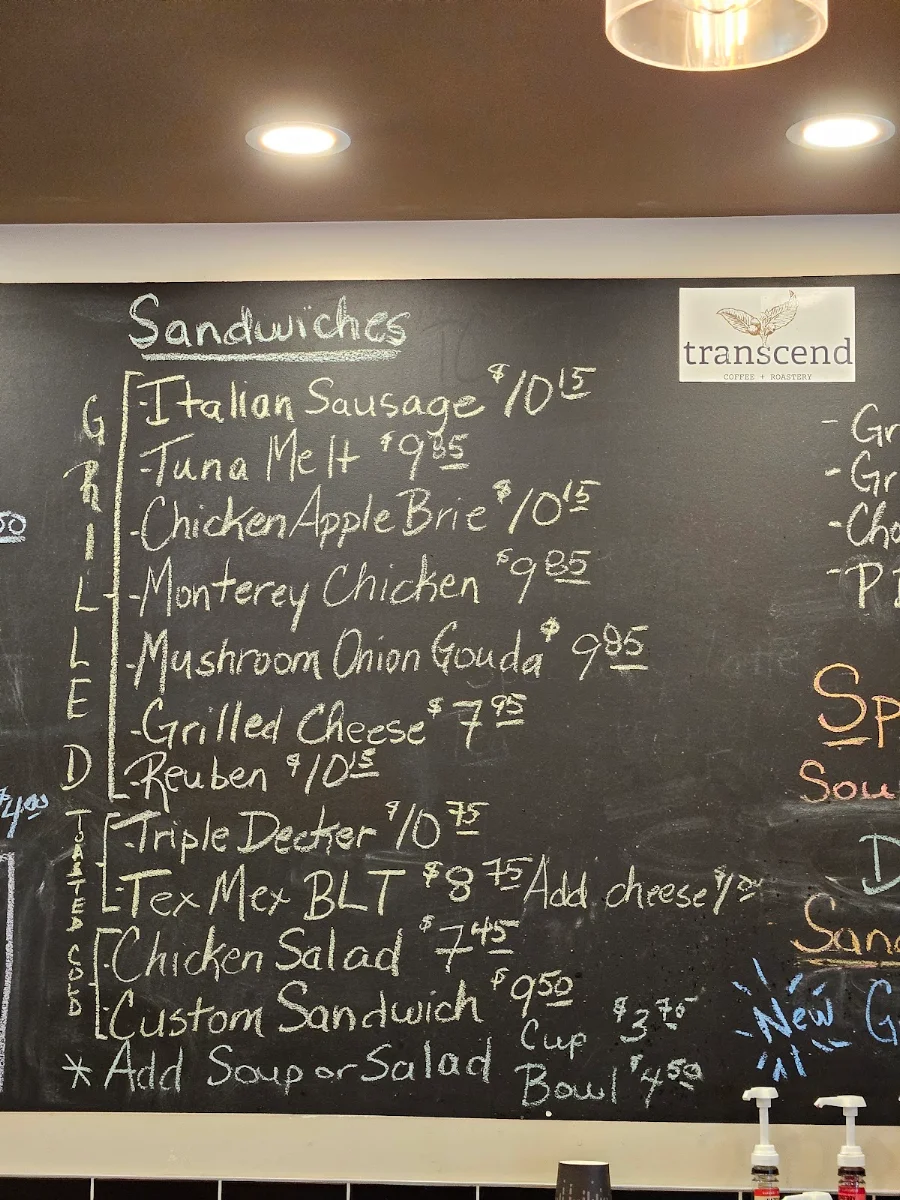 Sandwiches
transcend
COFFEE + ROASTERY
GRILLED
-Italian Sausage $10 15
-Tuna Melt $9 85
-Chicken Apple Brie $10 15
-Monterey Chicken $9 85
-Mushroom Onion Gouda $9 95
-Grilled Cheese $7 95
-Reuben $10 15
TOASTED
-Triple Decker $10 75
-Tex Mex BLT $8 75 Add cheese
COLD
-Chicken Salad $7 45
-Custom Sandwich $9 50
* Add Soup or Salad
Cup $3 75
Bowl $4 50
50
$4 00
- Gr
- Gr
- Cho
Sp
Sou
D
San
New G